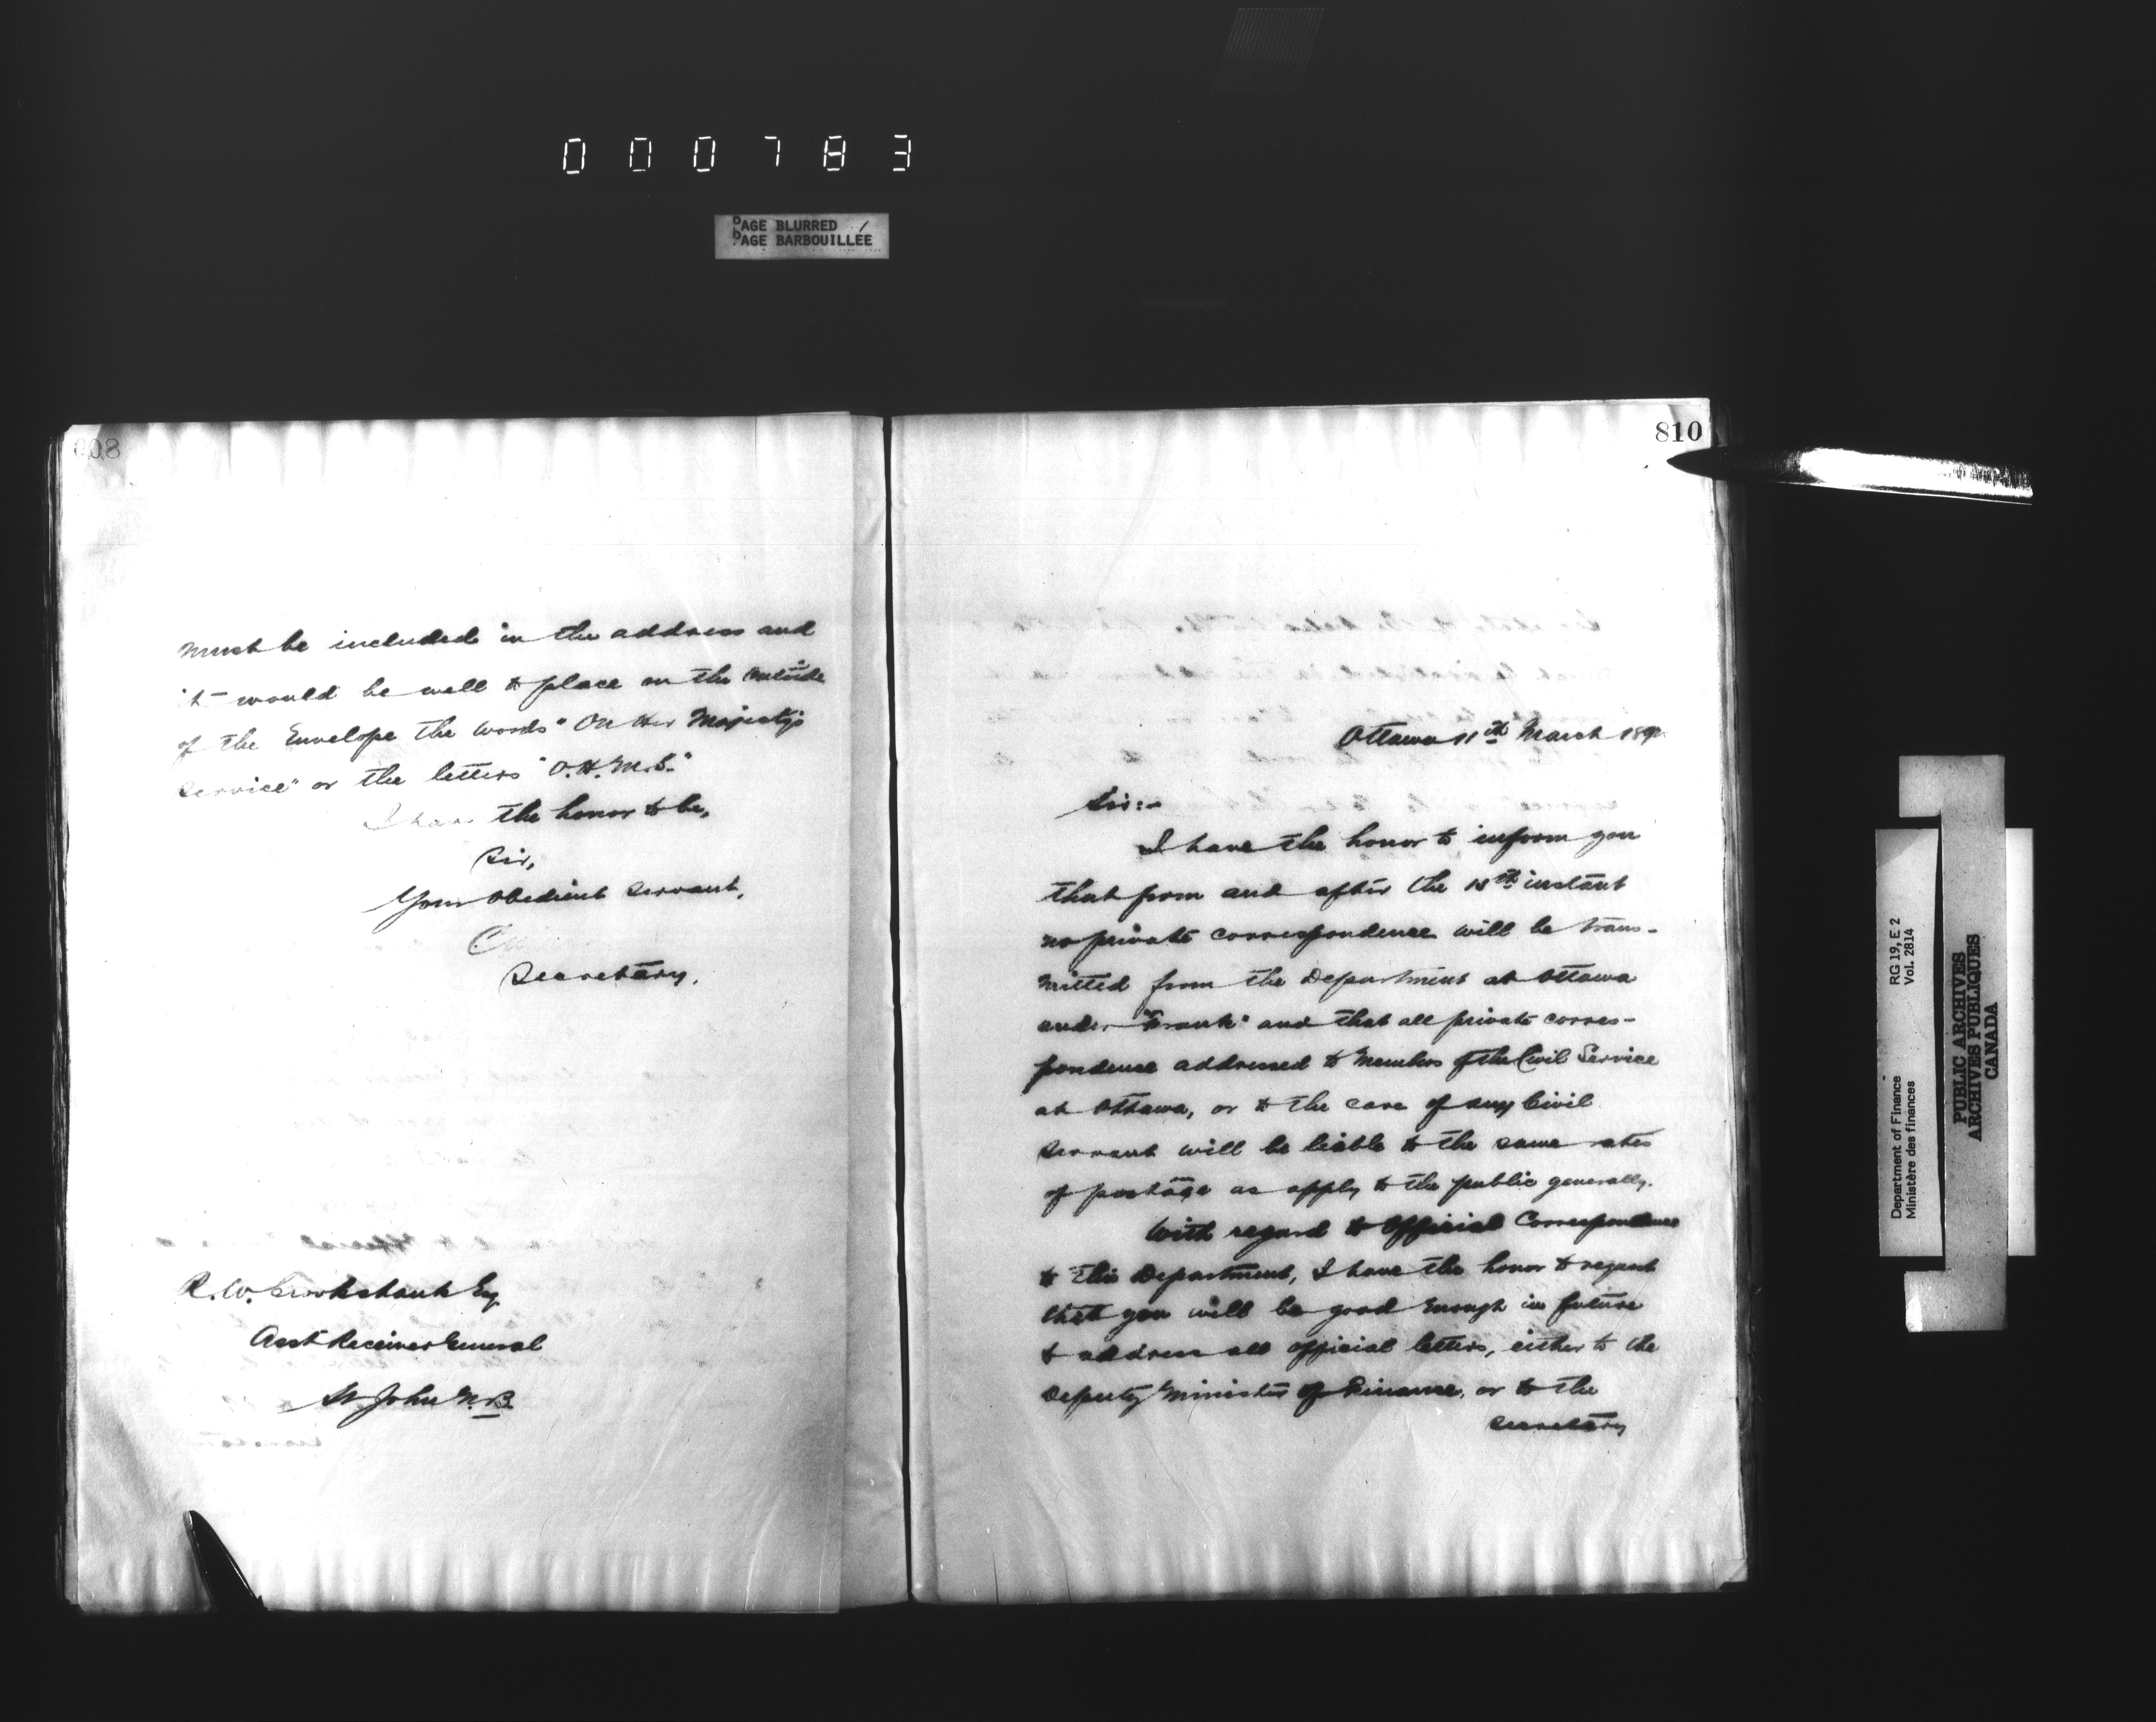 000783
PAGE BLURRED
PAGE BARBOUILLÉE
808
must be included in the address and
it would be well to place on the outside
of the Envelope the words "On Her Majesty's
Service" or the letters "O.H.M.S."
I have the honor to be,
Sir,
Your obedient Servant,
Secretary.
R.W. Crookshank Esq
Asst Receiver General
St John N.B.
810
Ottawa 11th March 189
Sir:-
I have the honor to inform you
that from and after the instant
no private correspondence will be trans-
mitted from the Department at Ottawa
under "Frank" and that all private corres-
pondence addressed to Members of the Civil Service
at Ottawa, or to the care of any Civil
Servant will be liable to the same rates
of postage as apply to the public generally.
With regard to Official Correspondence
to this Department, I have the honor to request
that you will be good enough in future
to address all official letters, either to the
Deputy Minister of Finance, or to the
Secretary
Department of Finance RG 19, E 2
Ministère des finances Vol. 2814
PUBLIC ARCHIVES
ARCHIVES PUBLIQUES
CANADA